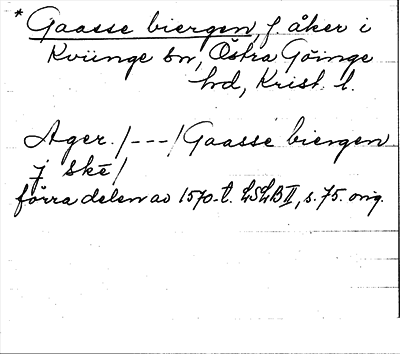 * Gaasse biergen, f. åker i
Kviinge sn, Östra Göinge
hd, Krist. l.
Ager /---/ Gaasse biergen
j ske /
förra delen av 1570-t. LSLB II, s. 75. orig.